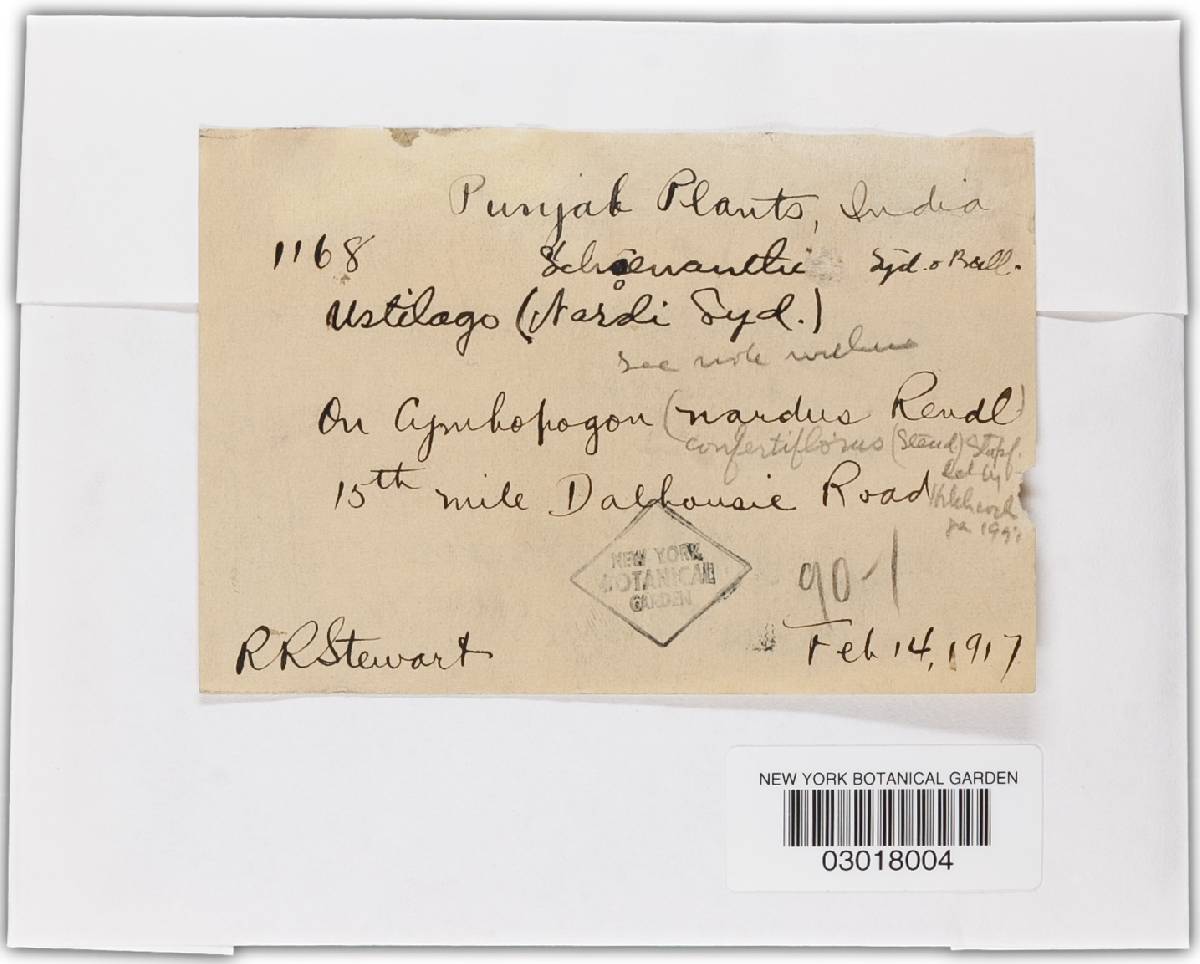 Punjab Plants, India
1168 Schoenanthi Syd. & Butl.
Ustilago (Nardi Syd.)
See note within
On Cymbopogon (nardus Rendl)
confertiflorus (Steud) Stapf.
det by
Hitchcock
15th mile Dalhousie Road
NEW YORK
BOTANICAL
GARDEN
90-1
RRStewart Feb 14, 1917
NEW YORK BOTANICAL GARDEN
03018004